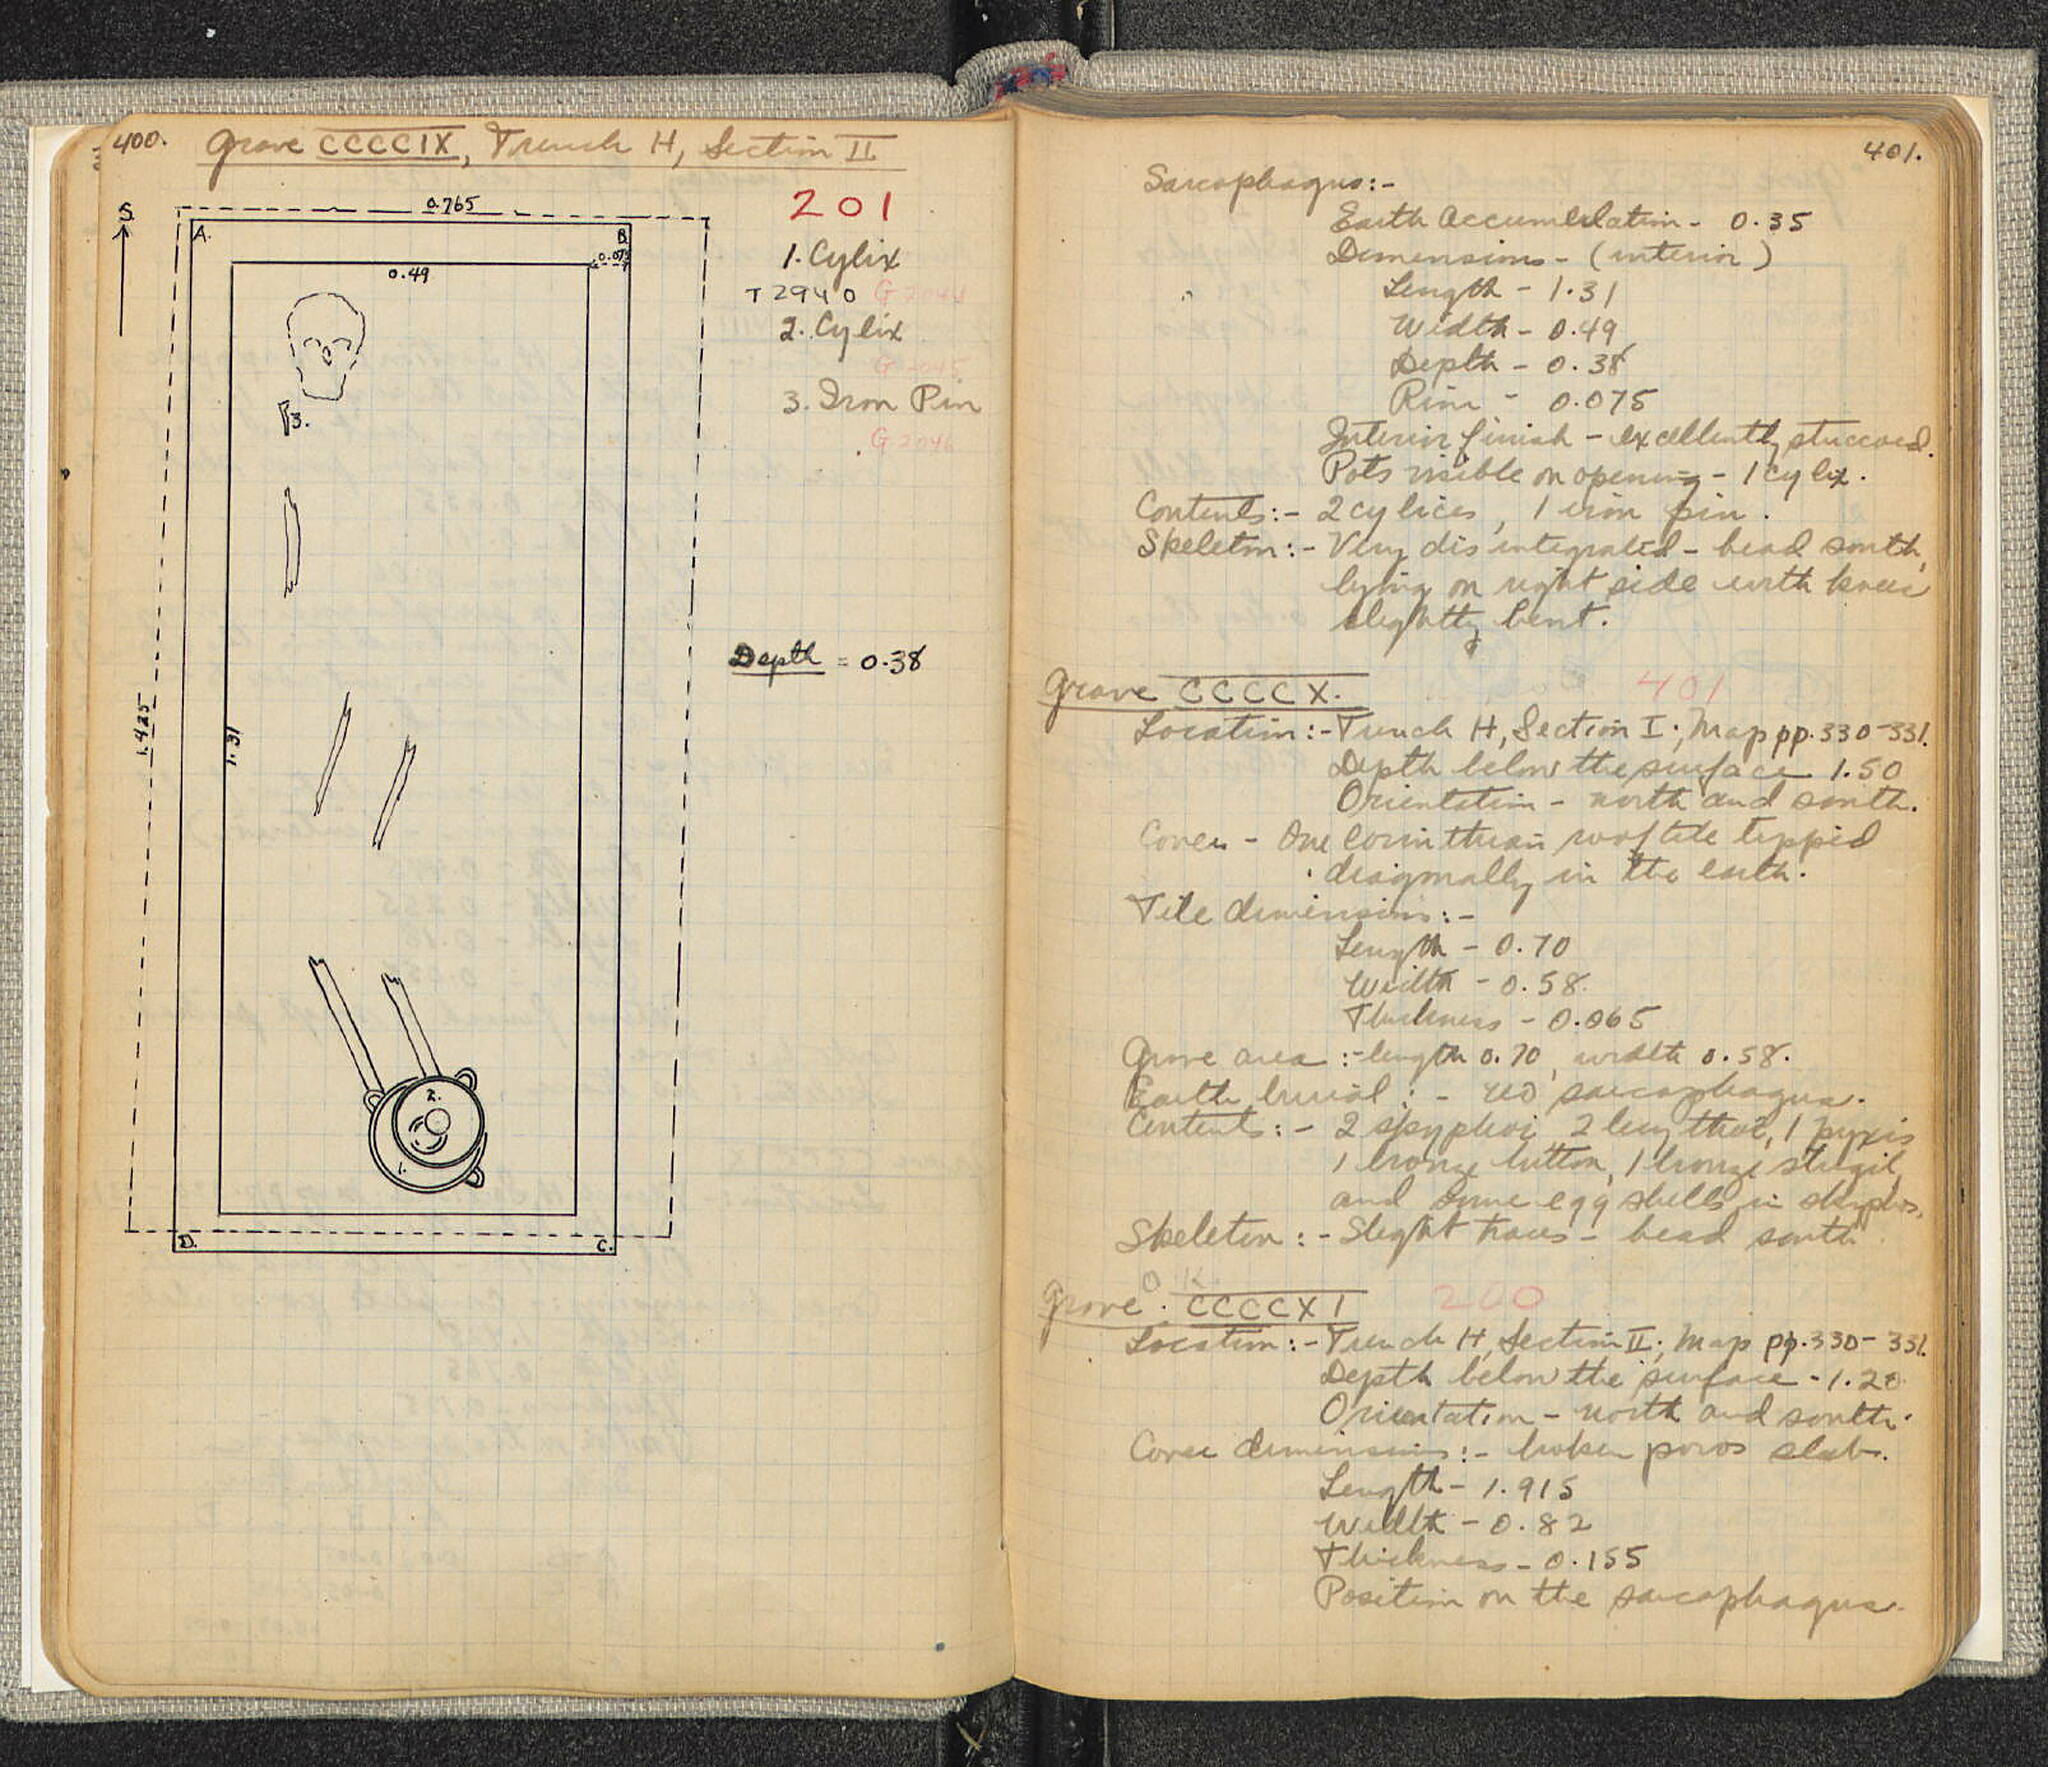 400. Grave CCCCIX, Trench H, Section II
S.
0.765
A.
B.
0.075
0.49
3.
1.425
1.31
2.
1.
D.
C.
201
1. Cylix
T 2940 G 2044
2. Cylix
G 2045
3. Iron Pin
G 2046
Depth = 0.38
401.
Sarcophagus:-
Earth Accumulation - 0.35
Dimensions - (interior)
Length - 1.31
Width - 0.49
Depth - 0.38
Rim - 0.075
Interior finish - excellently stuccoed.
Pots visible on opening - 1 cylix.
Contents:- 2 cylices, 1 iron pin.
Skeleton:- Very disintegrated - head south,
lying on right side with knees
slightly bent.
Grave CCCCX. 401
Location:- Trench H, Section I; Map pp. 330-331.
Depth below the surface 1.50
Orientation - north and south.
Cover - One Corinthian roof tile tipped
diagonally in the earth.
Tile dimensions:-
Length - 0.70
Width - 0.58.
Thickness - 0.065
Grave area:- length 0.70, width 0.58.
Earth burial:- no sarcophagus.
Contents:- 2 skyphoi, 2 lecythoi, 1 pyxis
1 bronze button, 1 bronze strigil,
and some egg shells in skyphos.
Skeleton:- Slight traces - head south
O.K.
Grave CCCCXI 200
Location:- Trench H, Section II; Map pp. 330-331.
Depth below the surface - 1.20
Orientation - north and south.
Cover dimensions:- broken poros slab.
Length - 1.915
Width - 0.82
Thickness - 0.155
Position on the sarcophagus.